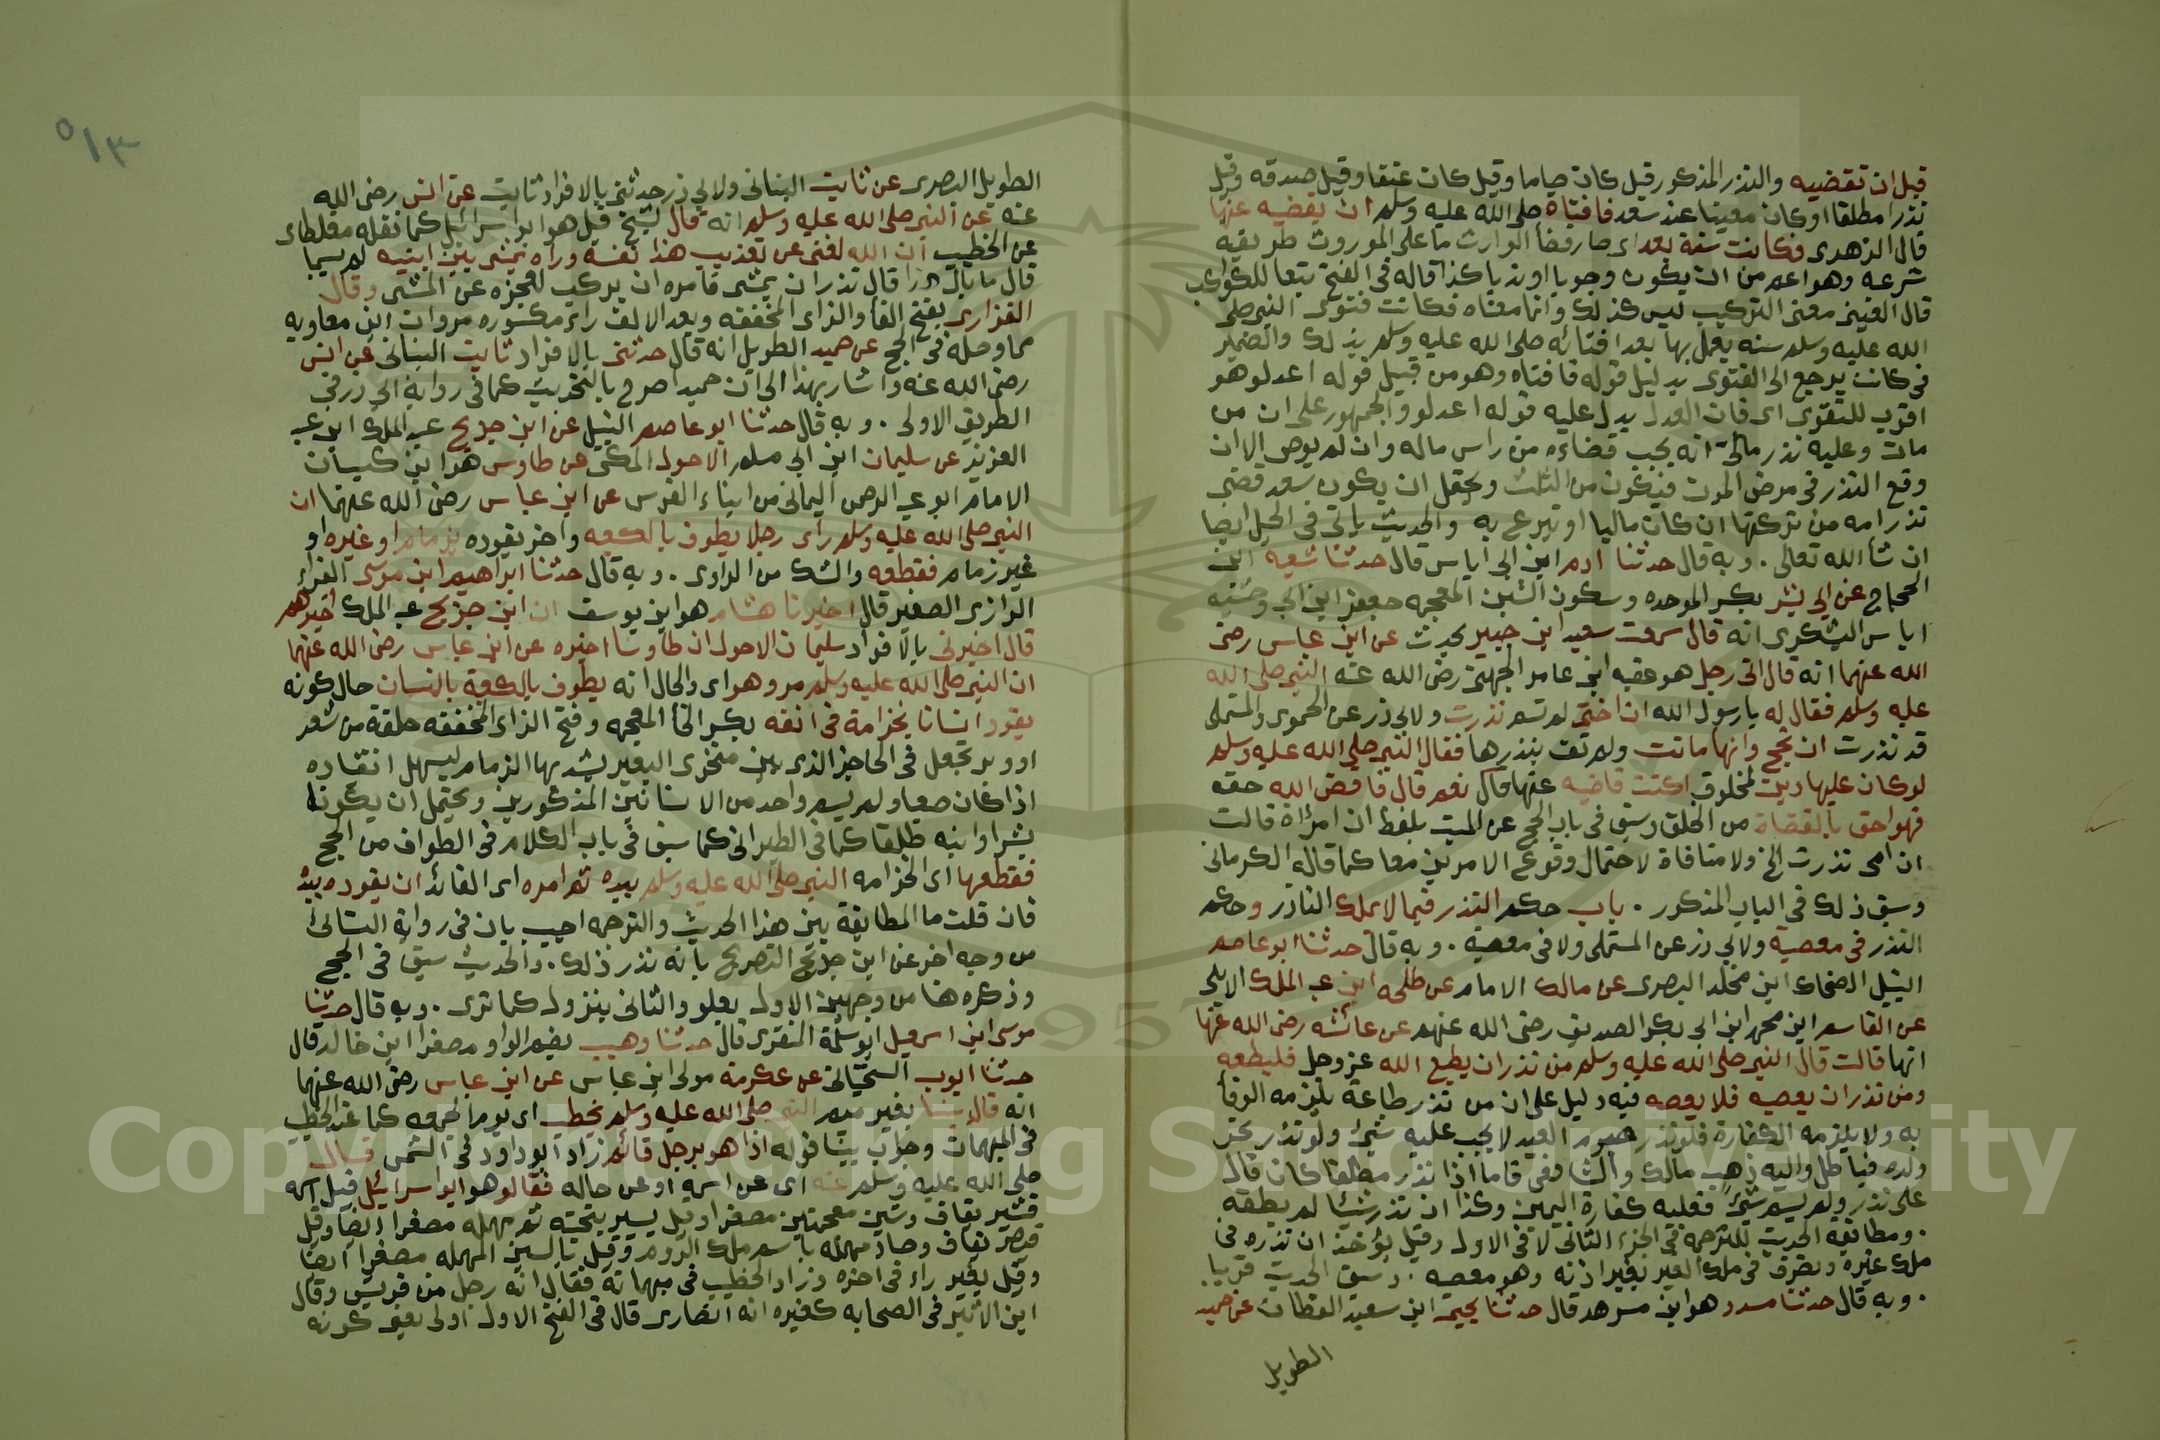 قبل ان تقضيه والنذر المذكور قيل كان صياما وقيل كان عتقا وقيل صدقة وقيل
نذرا مطلقا او كان معينا عند سعد فافتاه صلى الله عليه وسلم ان يقضيه عنها
قال الزهرى فكانت سنة بعد اى صار قضأ الوارث ما على الموروث طريقه
شرعه وهو اعم من ان يكون وجوبا او ندبا كذا قاله فى الفتح تبعا للكواكب
قال العينى معنى التركيب ليس كذلك وانما معناه فكانت فتوى النبى صلى
الله عليه وسلم سنه يعمل بها بعد افتائه صلى الله عليه وسلم بذلك والضمير
فى كانت يرجع الى الفتوى بدليل قوله فافتاه وهو من قبيل قوله اعدلو هو
اقرب للتقوى اى فان العدل يدل عليه قوله اعدلو والجمهور على ان من
مات وعليه نذر مالى انه يجب قضاءه من راس ماله وان لم يوص الا ان
وقع النذر فى مرض الموت فيكون من الثلث ويحتمل ان يكون سعد قضى
نذر امه من تركتها ان كان ماليا او تبرع به والحديث ياتى فى الحيل ايضا
ان شأ الله تعالى . وبه قال حدثنا ادم ابن ابى اياس قال حدثنا شعبه ابن
الحجاج عن ابى بشر بكسر الموحده وسكون الشين المعجمه جعفر ابن ابى وحشيه
اياس اليشكرى انه قال سمعت سعيد ابن جبير يحدث عن ابن عباس رضى
الله عنهما انه قال اتى رجل هو عقبه ابن عامر الجهنى رضى الله عنه النبى صلى الله
عليه وسلم فقال له يا رسول الله ان اختى لم تسم نذرت ولابى ذر عن الحموى والمستملى
قد نذرت ان تحج وانها ماتت ولم تف بنذرها فقال النبى صلى الله عليه وسلم
لو كان عليها دين لمخلوق اكنت قاضيه عنها قال نعم قال فاقض الله حقه
فهو احق بالقضاة من الخلق وسبق فى باب الحج عن الميت بلفظ ان امرأة قالت
ان امى نذرت الخ ولا منافاة لاحتمال وقوع الامرين معا كما قاله الكرمانى
وسبق ذلك فى الباب المذكور . باب حكم النذر فيما لا يملك الناذر وحكم
النذر فى معصية ولابى ذر عن المستملى ولا فى معصية . وبه قال حدثنا ابو عاصم
النبيل الضحاك ابن مخلد البصرى عن مالك الامام عن طلحه ابن عبد الملك الايلى
عن القاسم ابن محمد ابن ابى بكر الصديق رضى الله عنهم عن عائشه رضى الله عنها
انها قالت قال النبى صلى الله عليه وسلم من نذر ان يطيع الله عز وجل فليطعه
ومن نذر ان يعصيه فلا يعصه فيه دليل على ان من نذر طاعة يلزمه الوفأ
به ولا يلزمه الكفارة فلو نذر صوم العيد لا يجب عليه شئ ولو نذر نحر
ولده فباطل واليه ذهب مالك والشافعى فاما اذا نذر مطلقا كان قال
على نذر ولم يسم شئ فعليه كفارة اليمين وكذا ان نذر شيئا لم يطقه
. ومطابقه الحديث للترجمة فى الجزء الثانى لا فى الاول وقيل يؤخذ ان نذره فى
ملك غيره وتصرف فى ملك الغير بغير اذنه وهو معصيه . وسبق الحديث قريبا
. وبه قال حدثنا مسدد هو ابن مسرهد قال حدثنا يحيى ابن سعيد القطان عن حميد
الطويل
٥١٣
الطويل البصرى عن ثابت البنانى ولابى ذر حدثنى بالافراد ثابت عن انس رضى الله
عنه عن النبى صلى الله عليه وسلم انه قال لشيخ قيل هو ابو اسرائيل كما نقله مغلطاى
عن الخطيب ان الله لغنى عن تعذيب هذا نفسه وراه يمشى بين ابنيه لم يسميا
قال ما بال هذا قال نذر ان يمشى فامره ان يركب لعجزه عن المشى وقال
الفزارى بفتح الفا والزاى المخففه وبعد الالف راء مكسوره مروان ابن معاويه
مما وصله فى الحج عن حميد الطويل انه قال حدثنى بالافراد ثابت البنانى عن انس
رضى الله عنه واشار بهذا الى ان حميدا صرح بالتحديث كما فى رواية ابى ذر فى
الطريق الاولى . وبه قال حدثنا ابو عاصم النبيل عن ابن جريج عبد الملك ابن عبد
العزيز عن سليمان ابن ابى مسلم الاحول المكى عن طاوس هو ابن كيسان
الامام ابو عبد الرحمن اليمانى من ابناء الفرس عن ابن عباس رضى الله عنهما ان
النبى صلى الله عليه وسلم راى رجلا يطوف بالكعبه واخر يقوده بزمام او غيره او
غير زمام فقطعه والشك من الراوى . وبه قال حدثنا ابراهيم ابن موسى الفراء
الرازى الصغير قال اخبرنا هشام هو ابن يوسف ان ابن جريج عبد الملك اخبرهم
قال اخبرنى بالافراد سليمان الاحول ان طاوسا اخبره عن ابن عباس رضى الله عنهما
ان النبى صلى الله عليه وسلم مر وهو اى والحال انه يطوف بالكعبة بانسان حال كونه
يقود انسانا بخزامة فى انفه بكسر الخأ المعجمه وفتح الزاى المخففه حلقة من شعر
او وبر تجعل فى الحاجز الذى بين منخرى البعير يشد بها الزمام ليسهل انقياده
اذا كان صعبا ولم يسم واحد من الانسانين المذكورين ويحتمل ان يكونا
بشرا وابنه طلقا كما فى الطبرانى كما سبق فى باب الكلام فى الطواف من الحج
فقطعها اى الخزامه النبى صلى الله عليه وسلم بيده ثم امره اى القائد ان يقوده بيده
فان قلت ما المطابقة بين هذا الحديث والترجمه اجيب بان فى رواية النسائى
من وجه اخر عن ابن جريج التصريح بانه نذر ذلك . والحديث سبق فى الحج
وذكره هنا من وجهين الاول بعلو والثانى بنزول كما ترى . وبه قال حدثنا
موسى ابن اسمعيل ابو سلمة المنقرى قال حدثنا وهيب بضم الواو مصغرا ابن خالد قال
حدثنا ايوب السختيانى عن عكرمة مولى ابن عباس عن ابن عباس رضى الله عنهما
انه قال بينا بغير ميم النبى صلى الله عليه وسلم يخطب اى يوم الجمعه كما عند الخطيب
فى المبهمات وجواب بينا قوله اذا هو برجل قائم زاد ابو داود فى الشمس فسال
صلى الله عليه وسلم عنه اى عن اسمه او عن حاله فقالو هو ابو اسرائيل قيل اسمه
قشير بقاف وشين معجمتين مصغرا وقيل يسير بتحتيه ثم مهمله مصغرا ايضا وقيل
قيصر بقاف وصاد مهمله باسم ملك الروم وقيل بالسين المهمله مصغرا ايضا
وقيل بغير راء فى اخره وزاد الخطيب فى مبهماته فقال انه رجل من قريش وقال
ابن الاثير فى الصحابه كغيره انه انصارى قال فى الفتح الاول اولى يعنى كونه
Copyright © King Saud University
1957